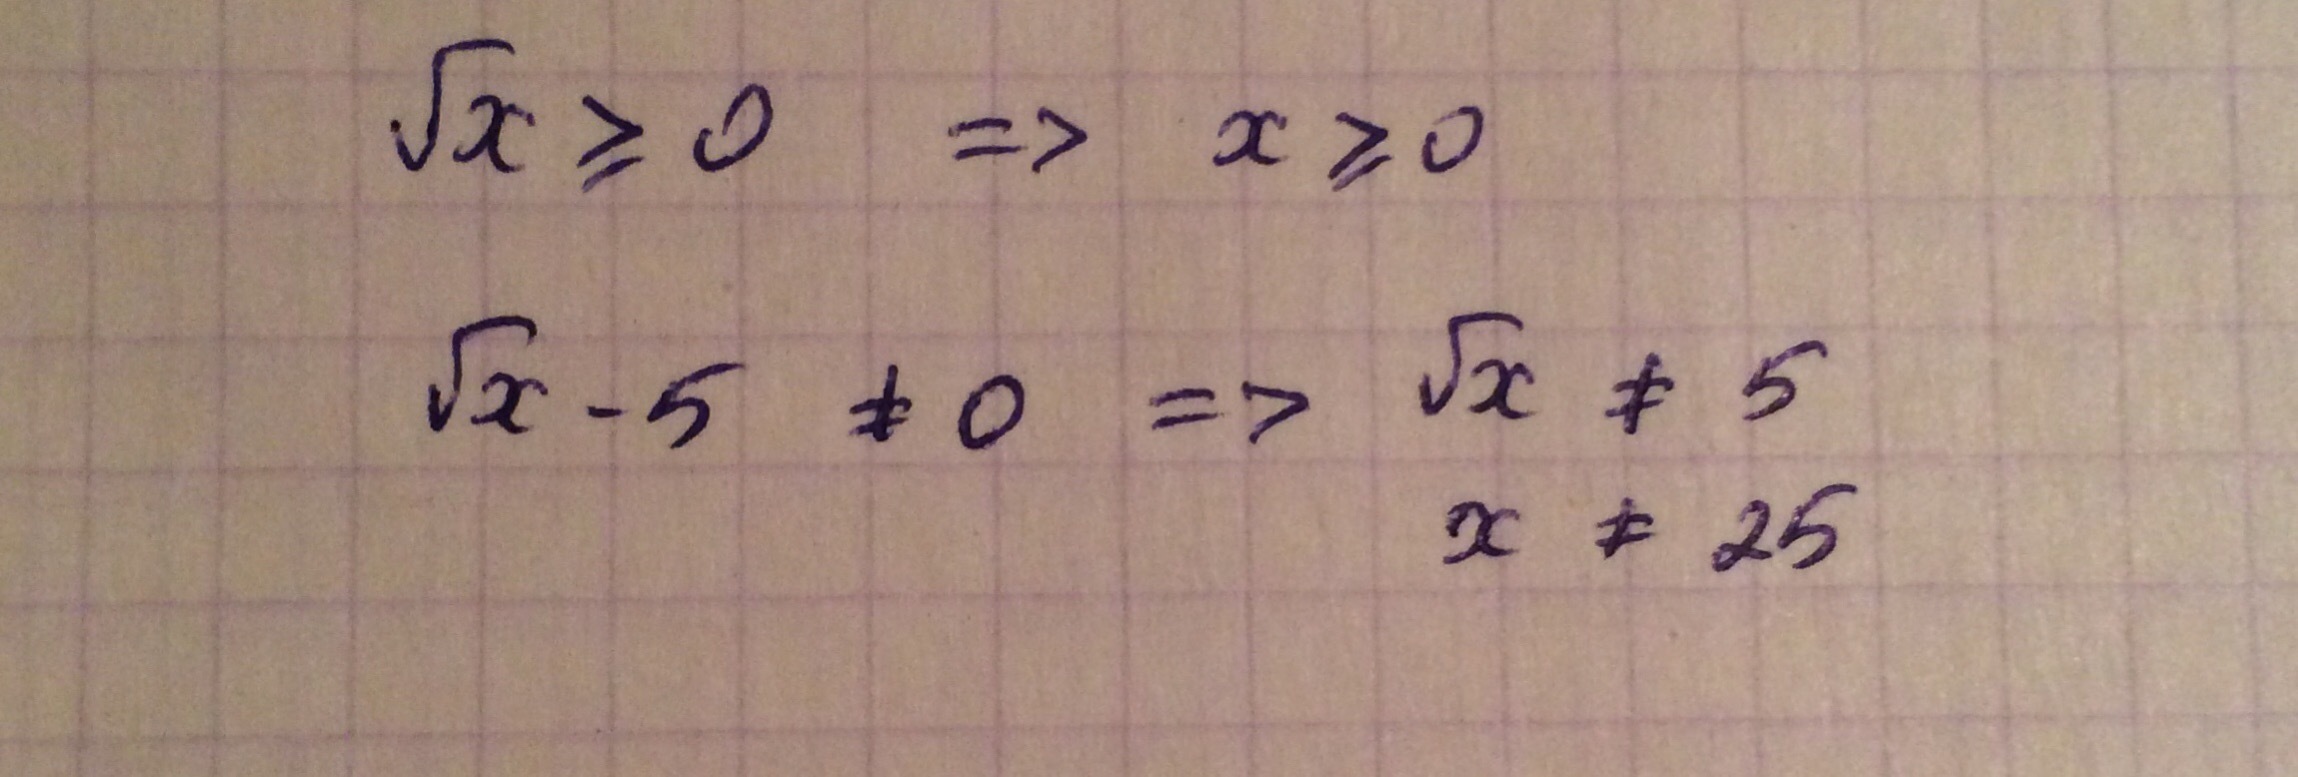 √x ⩾ 0 => x ⩾ 0
√x - 5 ≠ 0 => √x ≠ 5
x ≠ 25